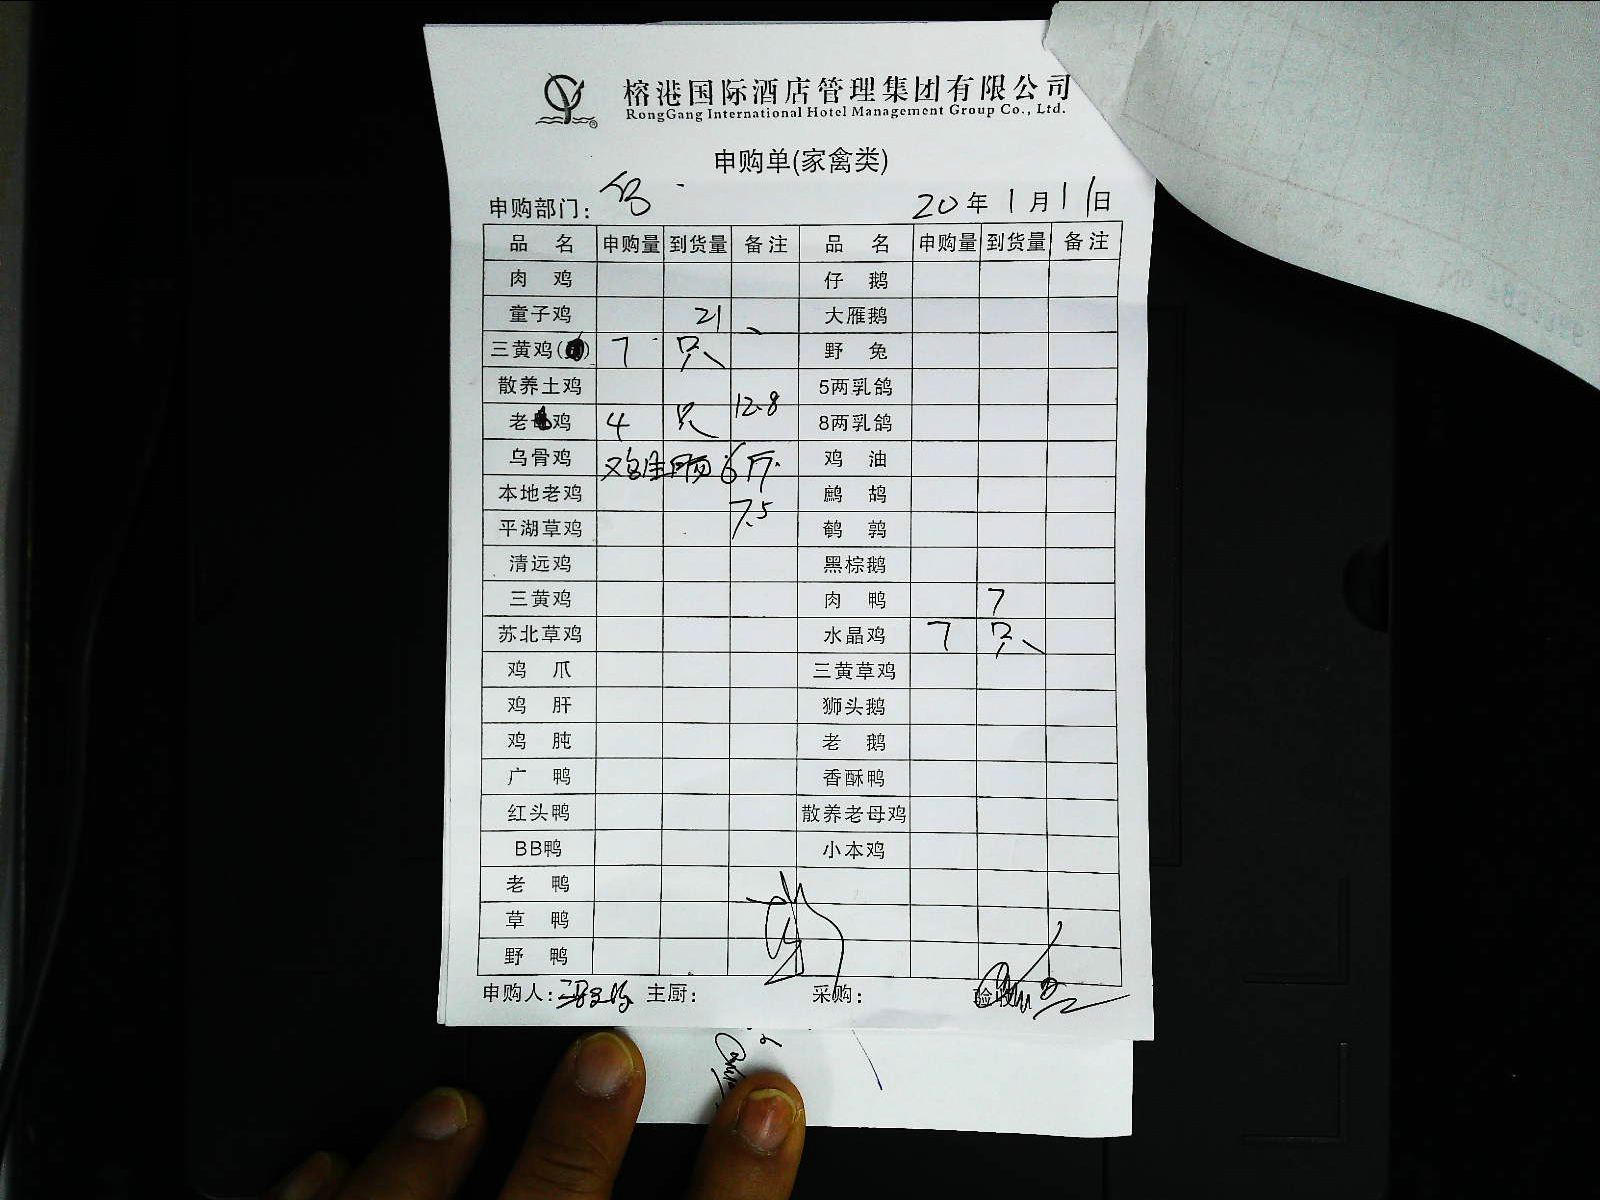 榕港国际酒店管理集团有限公司
RongGang International Hotel Management Group Co., Ltd.
申购单(家禽类)
申购部门:
20年1月11日
品 名 申购量 到货量 备注 品 名 申购量 到货量 备注
肉 鸡 仔 鹅
童子鸡 21 大雁鹅
三黄鸡( ) 7 只 野 兔
散养土鸡 5两乳鸽
老 鸡 4 只 12.8 8两乳鸽
乌骨鸡 鸡 6斤 鸡 油
本地老鸡 7.5 鹧 鸪
平湖草鸡 鹌 鹑
清远鸡 黑棕鹅
三黄鸡 肉 鸭 7
苏北草鸡 水晶鸡 7 只
鸡 爪 三黄草鸡
鸡 肝 狮头鹅
鸡 肫 老 鹅
广 鸭 香酥鸭
红头鸭 散养老母鸡
BB鸭 小本鸡
老 鸭
草 鸭
野 鸭
申购人: 主厨: 采购: 验收